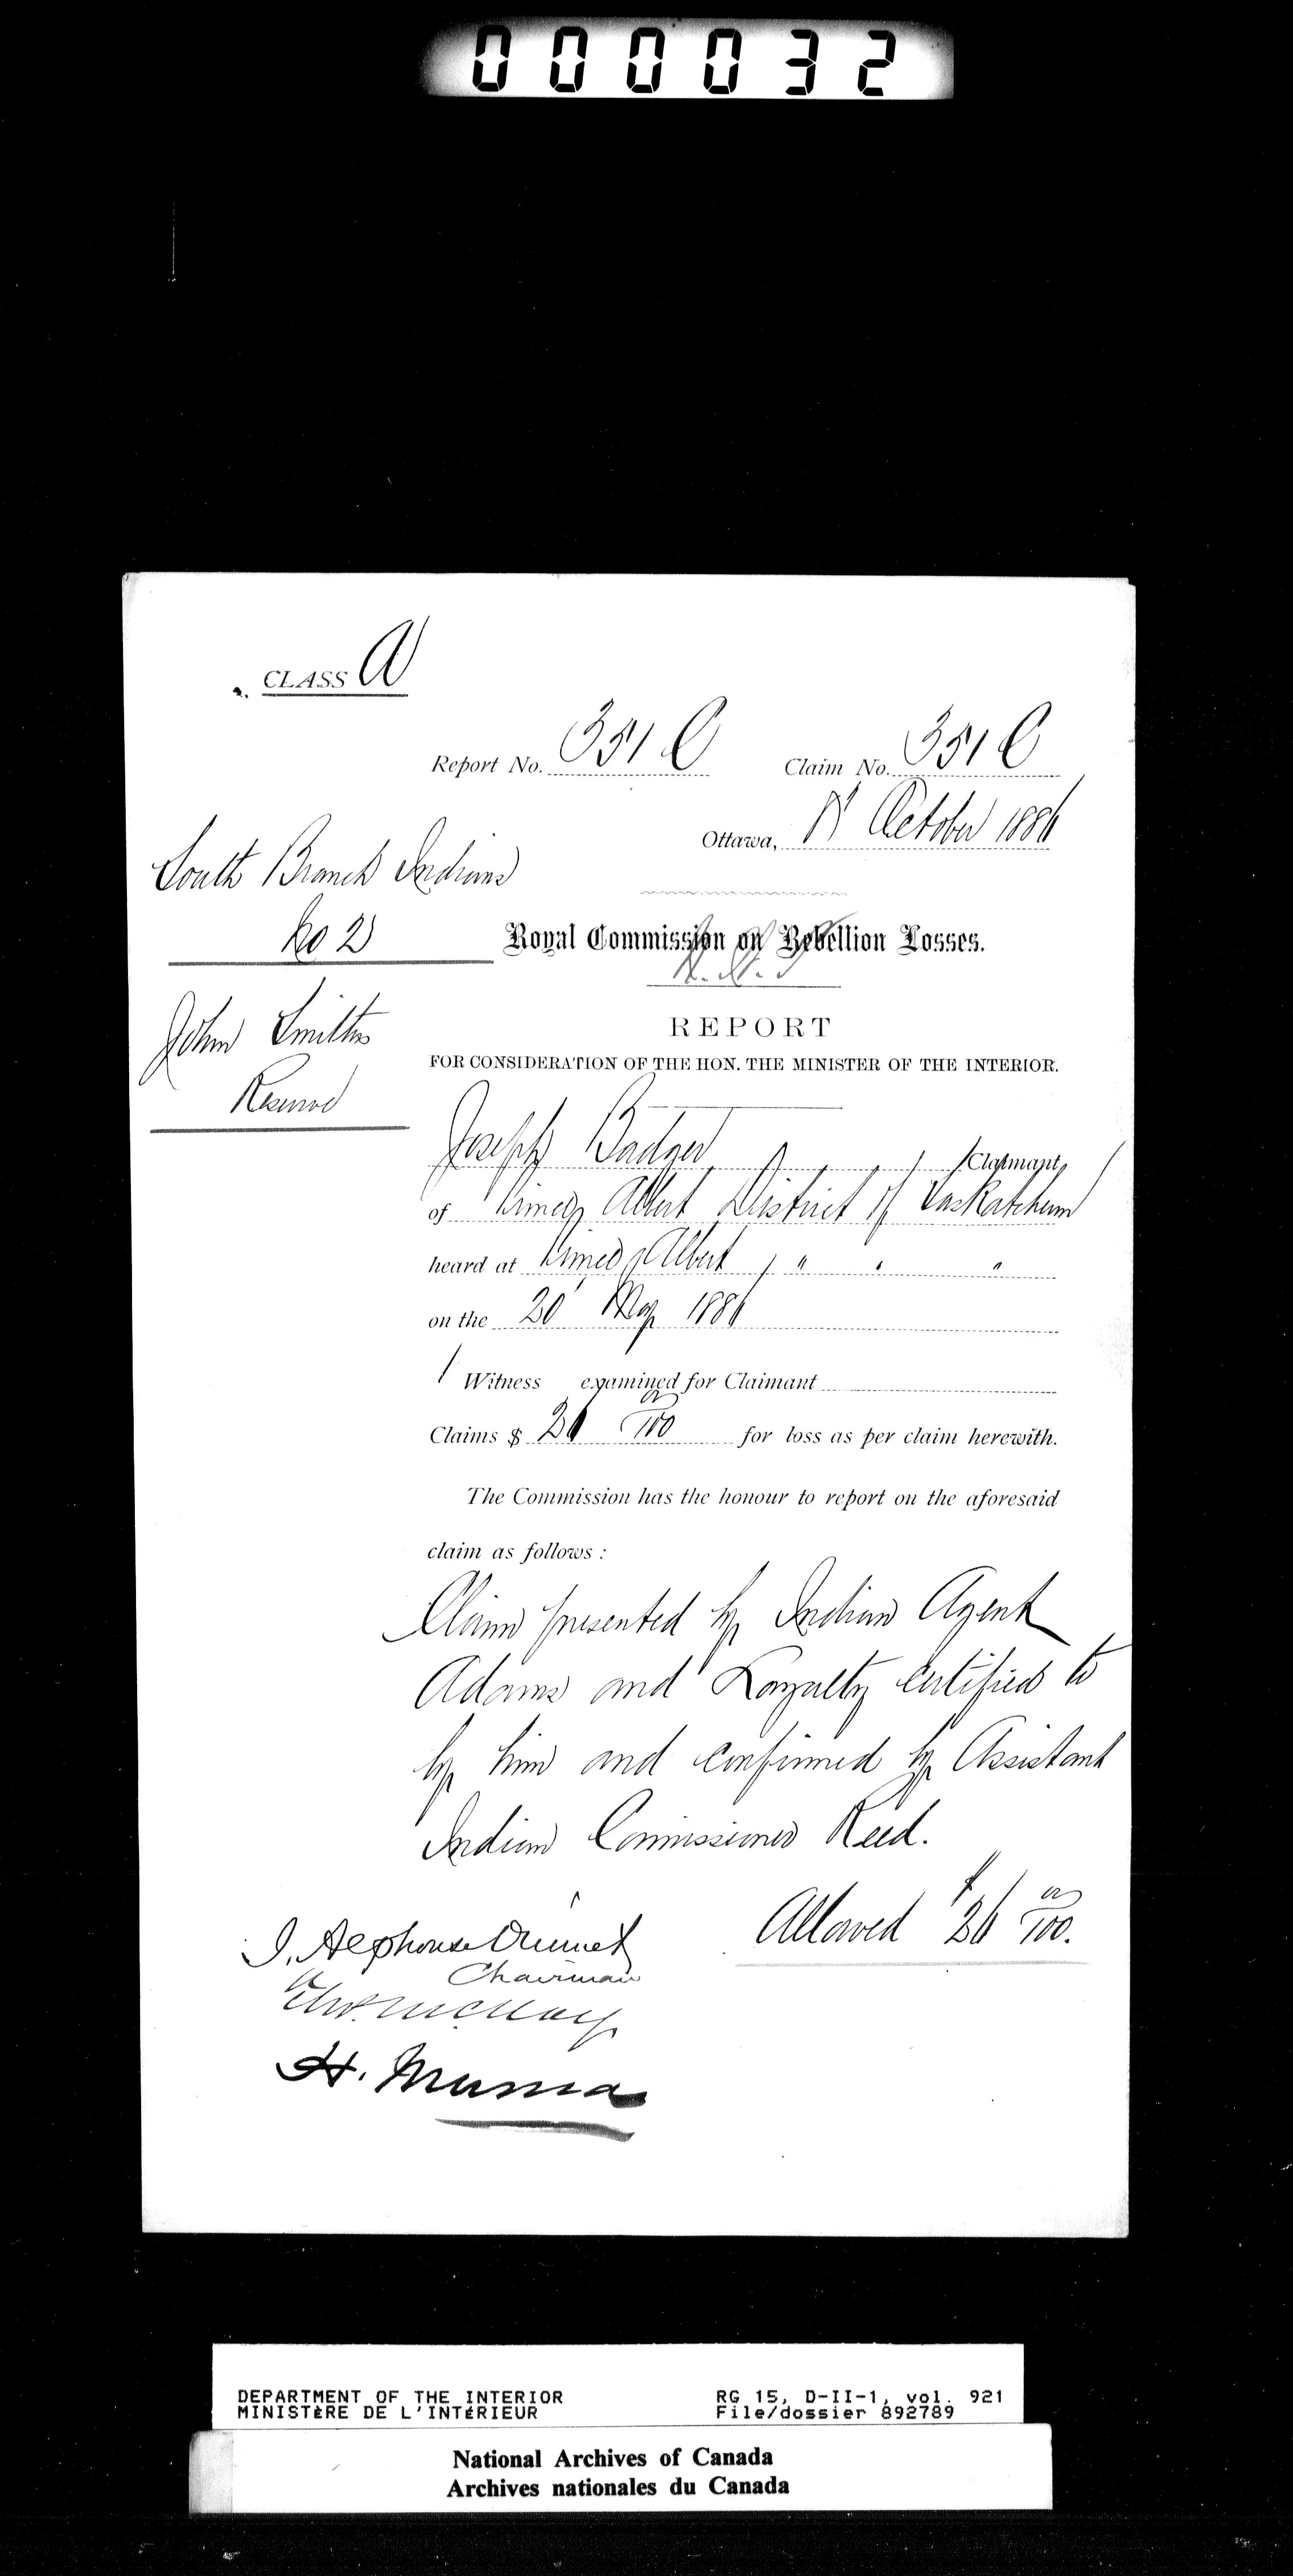 000032
CLASS A
Report No. 351 C Claim No. 351 C
Ottawa, October 1886
South Branch Indians
No 2
Royal Commission on Rebellion Losses.
John Smiths
Reserve
REPORT
FOR CONSIDERATION OF THE HON. THE MINISTER OF THE INTERIOR.
Joseph Badger Claimant
of Prince Albert District of Saskatchewan
heard at Prince Albert , " " "
on the 20' May 1886
1 Witness examined for Claimant
Claims $ 26 00/100 for loss as per claim herewith.
The Commission has the honour to report on the aforesaid
claim as follows :
Claim presented by Indian Agent
Adams and Loyalty certified to
by him and confirmed by Assistant
Indian Commissioner Reed.
Allowed $26 00/100.
J. Alphonse Ouimet
Chairman
H. Muma
DEPARTMENT OF THE INTERIOR RG 15, D-II-1, vol. 921
MINISTÈRE DE L'INTÉRIEUR File/dossier 892789
National Archives of Canada
Archives nationales du Canada